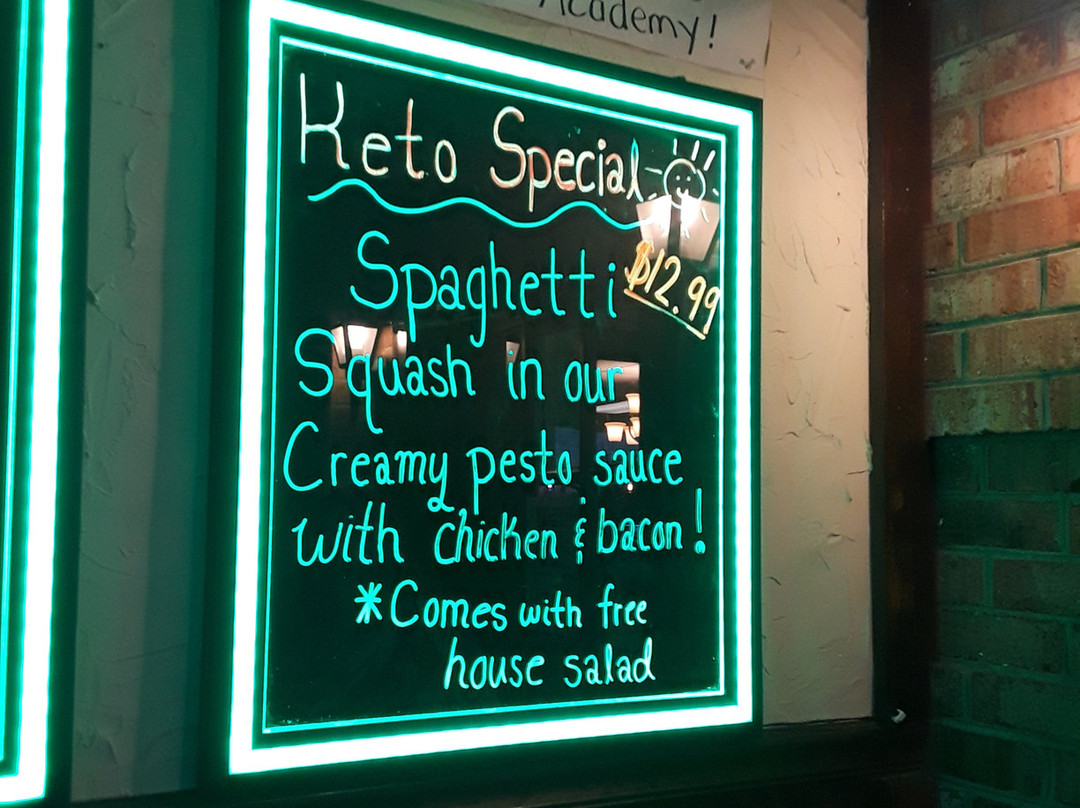 Academy!
Keto Special
$12.99
Spaghetti
Squash in our
Creamy pesto sauce
with chicken & bacon!
*Comes with free
house salad